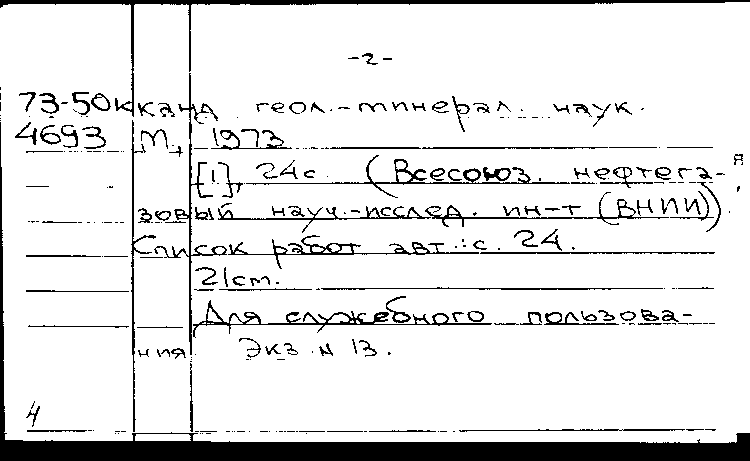 -2-
73-50к канд геол.-минерал. наук.
4693 М., 1973
[1], 24с. (Всесоюз. нефтега- я
зовый науч.-исслед. ин-т (ВНИИ)).
Список работ авт.: с. 24.
21см.
Для служебного пользова-
ния Экз. N 13.
4